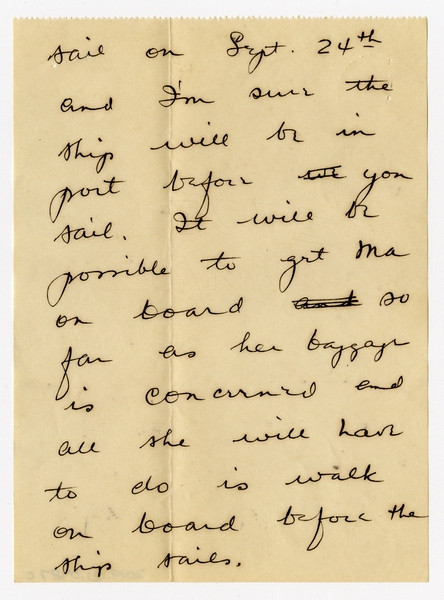 sail on Sept. 24th
and I'm sure the
ship will be in
port before we you
sail. It will be
possible to get Ma
on board and so
far as her baggage
is concerned and
all she will have
to do is walk
on board before the
ship sails.